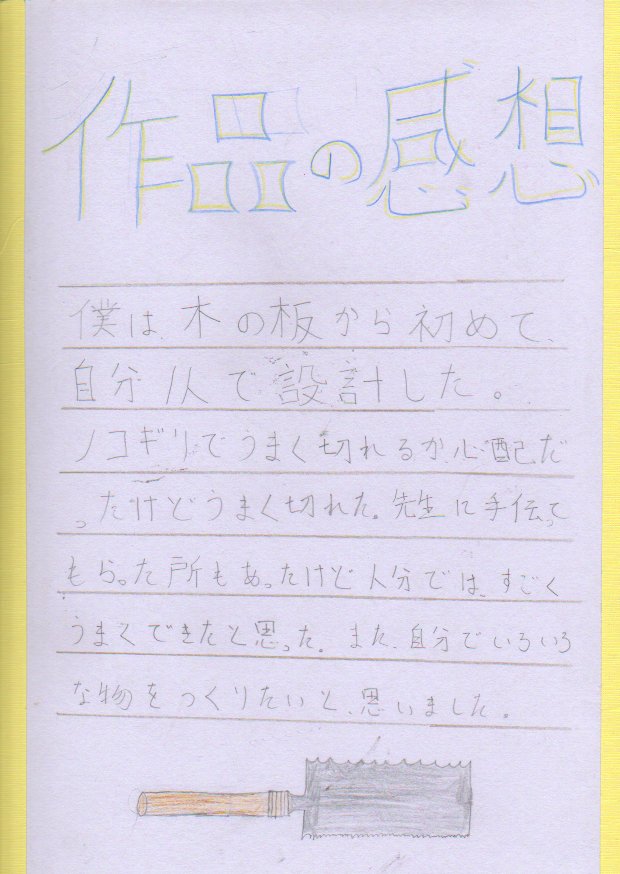 作品の感想
僕は、木の板から初めて、
自分1人で設計した。
ノコギリでうまく切れるか、心配だ
ったけどうまく切れた。先生に手伝って
もらった所もあったけど人分では、すごく
うまくできたと思った。また、自分でいろいろ
な物をつくりたいと、思いました。